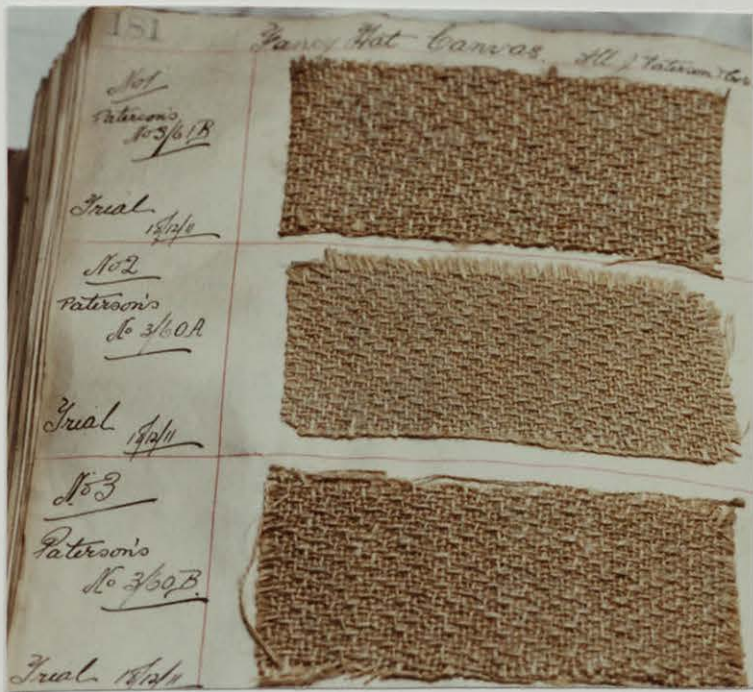 181
Fancy Hat Canvas.
No 1
Paterson's
No 3/61B
Trial
18/12/11
No 2
Paterson's
No 3/60A
Trial 18/12/11
No 3
Paterson's
No 3/60B.
Trial 18/12/11